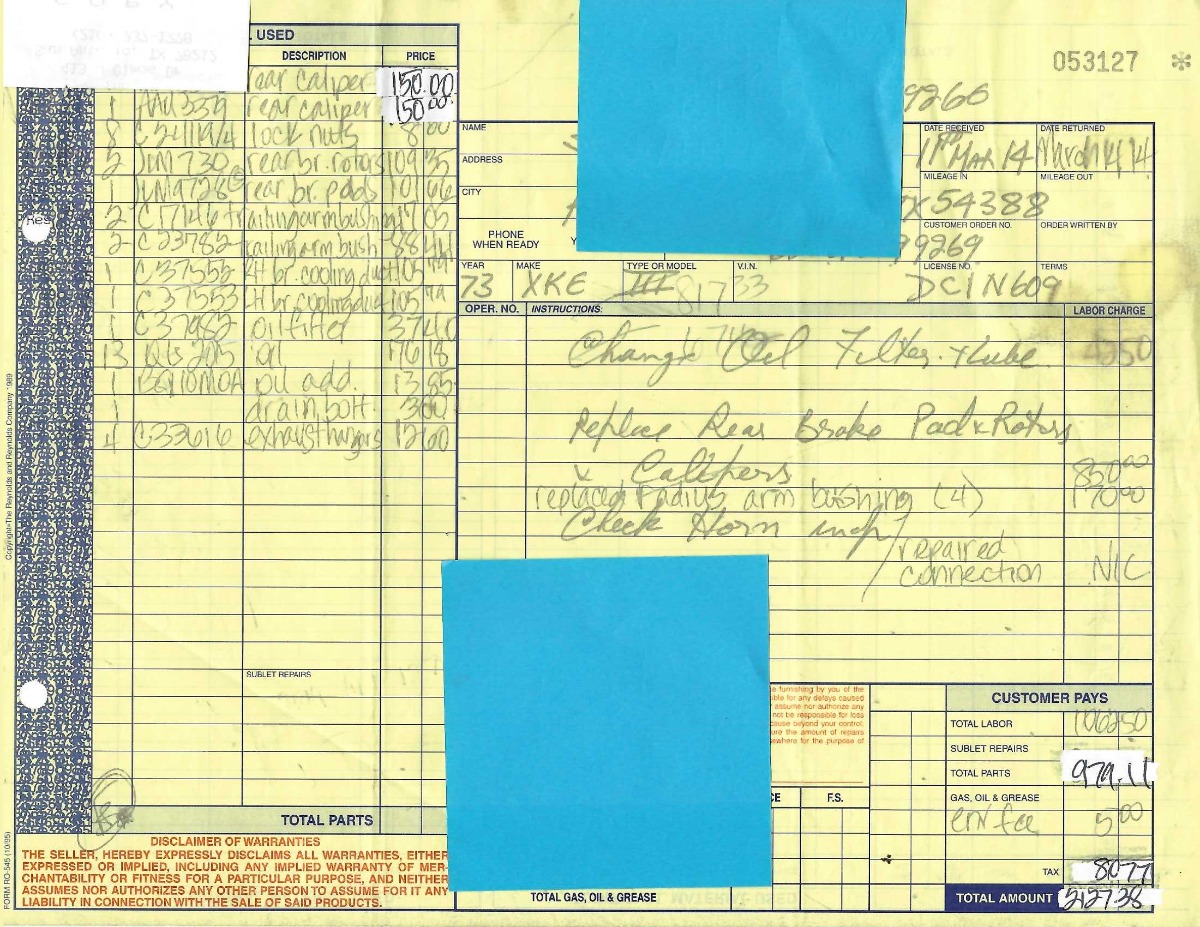 USED
DESCRIPTION PRICE
rear caliper 150.00
1 rear caliper 150.00
8 lock nuts 8 00
2 rear br. rotors 109 35
1 rear br. pads 101 66
2 trailing arm bushing 17 05
2 C 23782 trailing arm bush 88 44
1 C 37552 br. cooling duct 105
1 C 37553 br. cooling duct 105
1 C 37982 oil filter 37
13 oil 176 18
1 oil add. 13 85
1 drain bolt 3 00
4 C.33616 exhaust hangers 12 60
SUBLET REPAIRS
TOTAL PARTS
DISCLAIMER OF WARRANTIES
THE SELLER, HEREBY EXPRESSLY DISCLAIMS ALL WARRANTIES, EITHER
EXPRESSED OR IMPLIED, INCLUDING ANY IMPLIED WARRANTY OF MER-
CHANTABILITY OR FITNESS FOR A PARTICULAR PURPOSE, AND NEITHER
ASSUMES NOR AUTHORIZES ANY OTHER PERSON TO ASSUME FOR IT ANY
LIABILITY IN CONNECTION WITH THE SALE OF SAID PRODUCTS.
Copyright•The Reynolds and Reynolds Company 1989
FORM RO-545 (10/95)
053127 *
9266
NAME
DATE RECEIVED DATE RETURNED
Mar 14 March 4, 14
ADDRESS
MILEAGE IN MILEAGE OUT
54388
CITY
CUSTOMER ORDER NO. ORDER WRITTEN BY
99269
PHONE
WHEN READY
YEAR MAKE TYPE OR MODEL V.I.N. LICENSE NO. TERMS
73 XKE III 81733 DC1N609
OPER. NO. INSTRUCTIONS: LABOR CHARGE
Change Oil Filter & Lube 42 50
Replace Rear Brake Pad & Rotors
& Calipers 850 00
replaced radius arm bushing (4) 170 00
Check Horn inop / repaired
connection N/C
e furnishing by you of the
ible for any delays caused
assume nor authorize any
not be responsible for loss
cause beyond your control.
ure the amount of repairs
sewhere for the purpose of
CE F.S.
TOTAL GAS, OIL & GREASE
CUSTOMER PAYS
TOTAL LABOR 1062 50
SUBLET REPAIRS
TOTAL PARTS 979.11
GAS, OIL & GREASE
env fee 5 00
TAX 80 77
TOTAL AMOUNT 2127 38